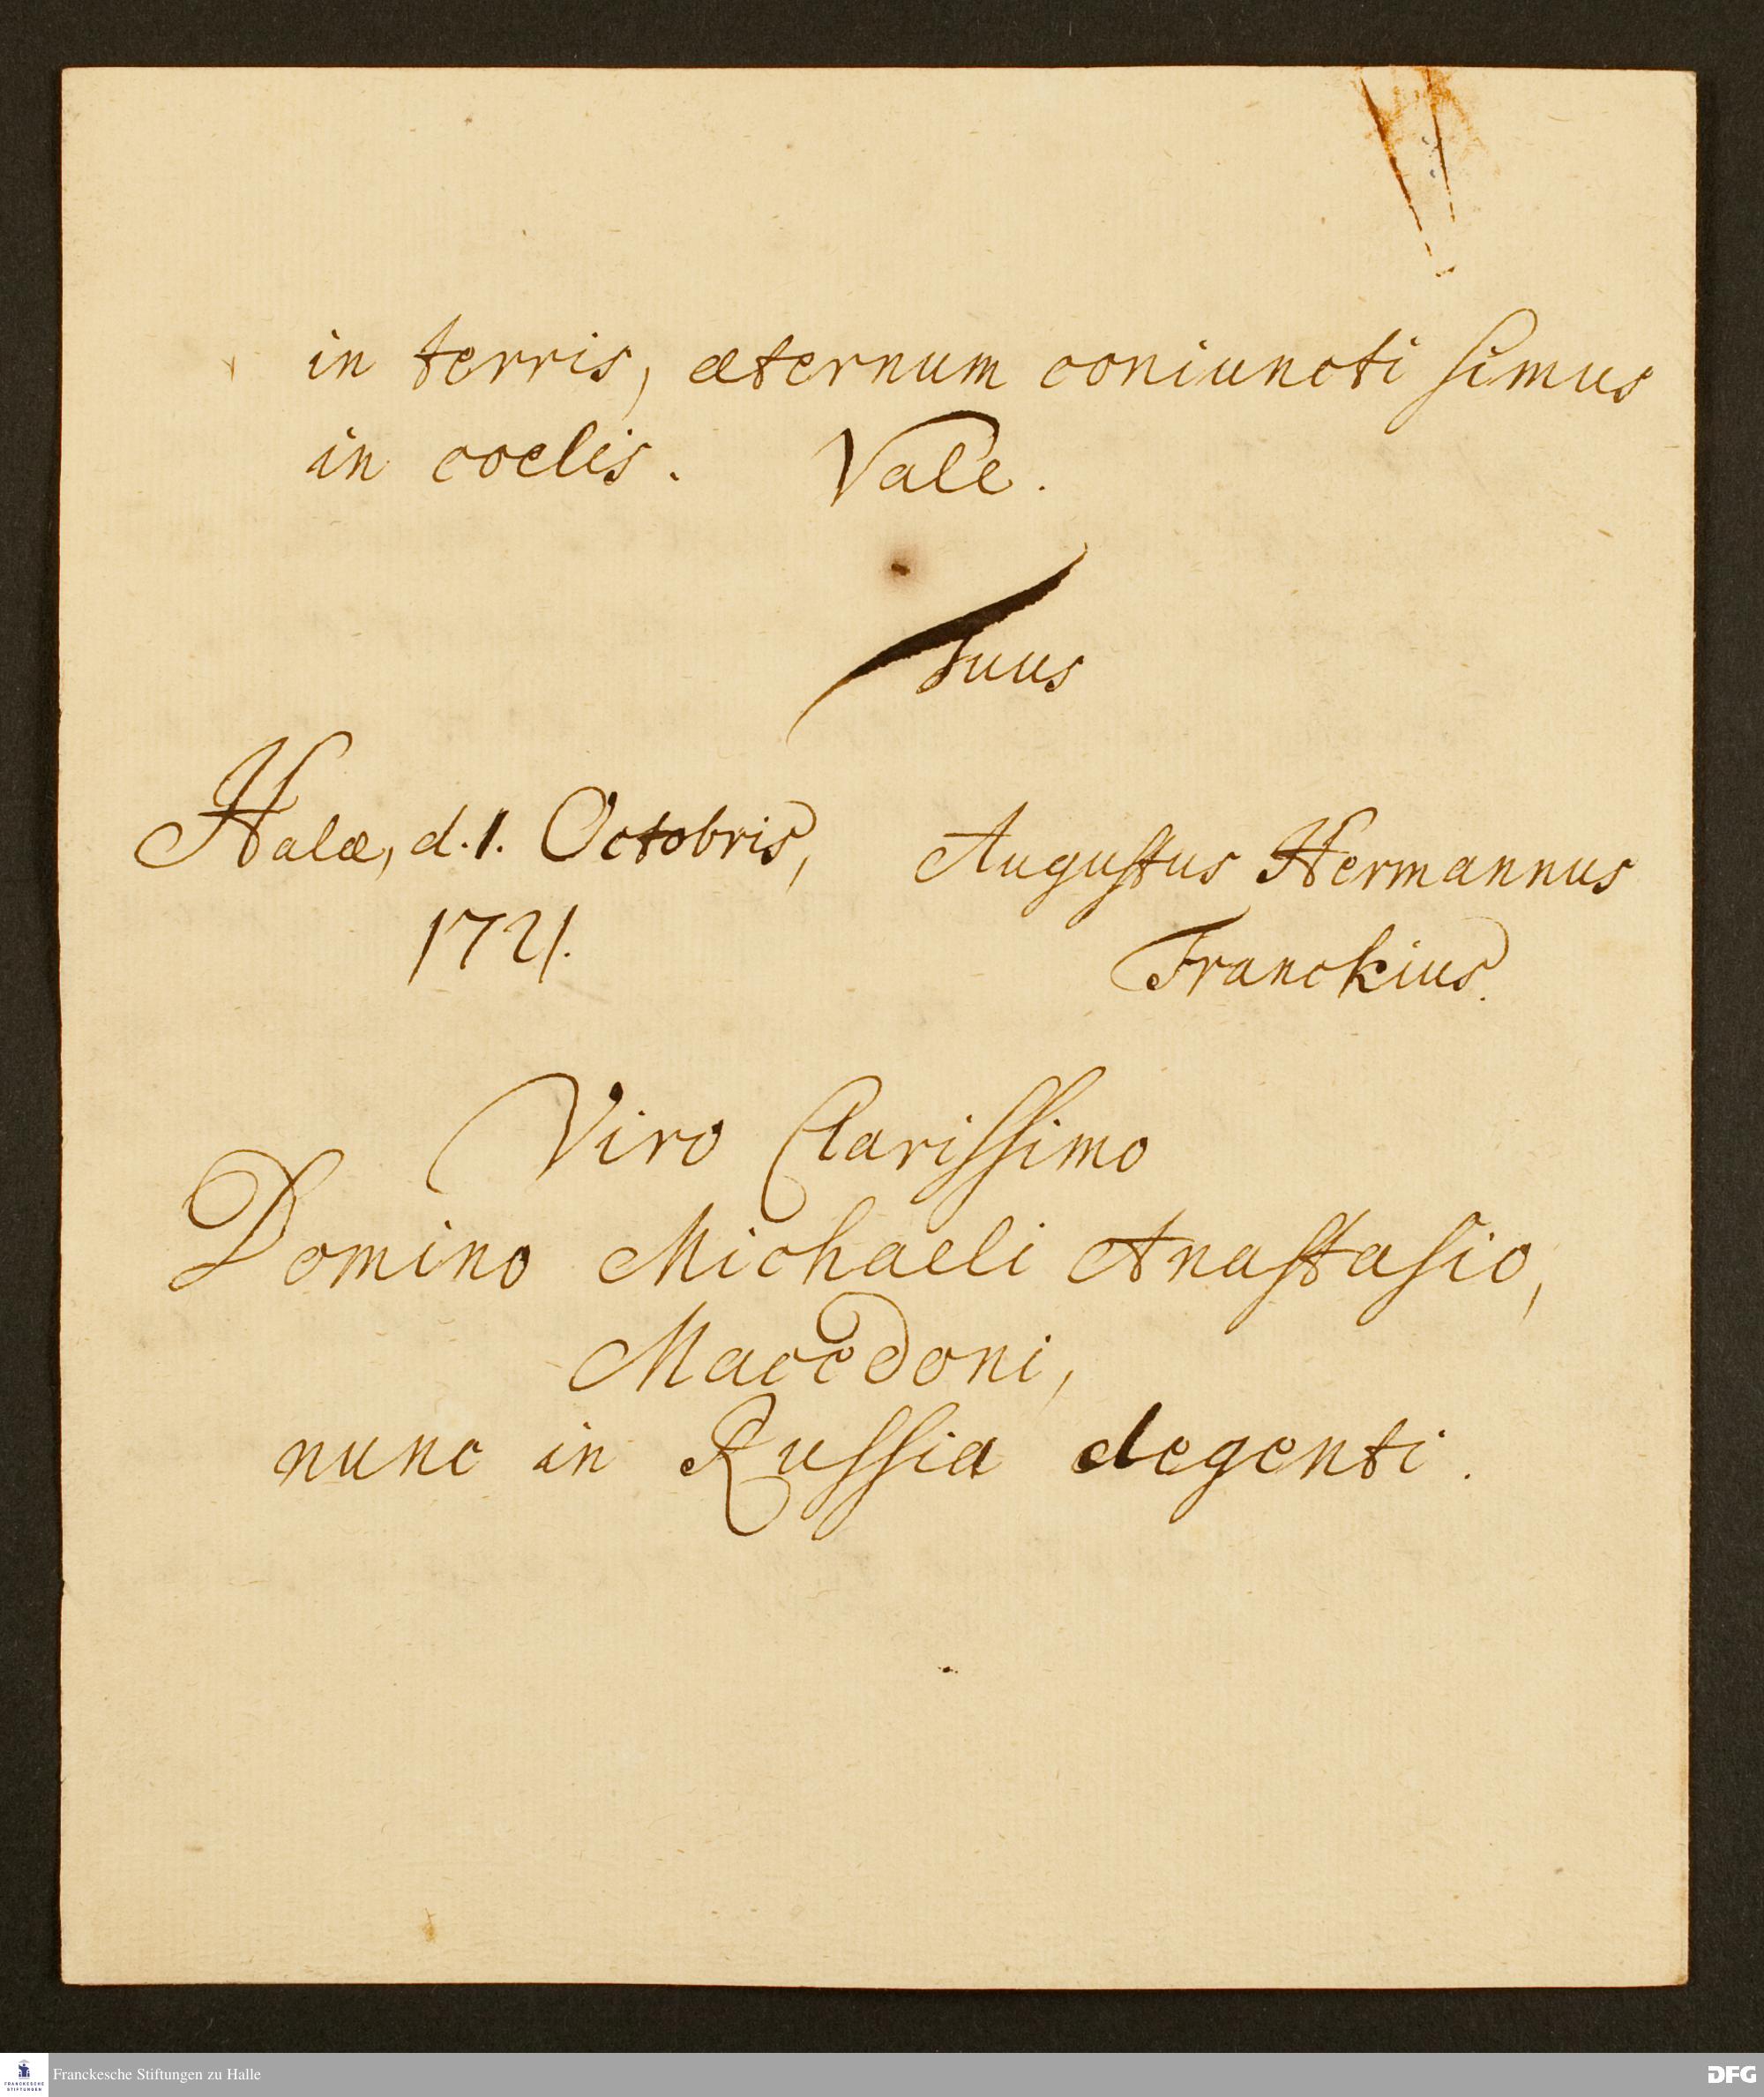 in terris, æternum coniuncti simus
in coelis. Vale.
Tuus
Halæ, d. 1. Octobris,
1721.
Augustus Hermannus
Franckius.
Viro Clarissimo
Domino Michaeli Anastasio,
Macedoni,
nunc in Russia degenti.
FRANCKESCHE
STIFTUNGEN
Franckesche Stiftungen zu Halle
DFG